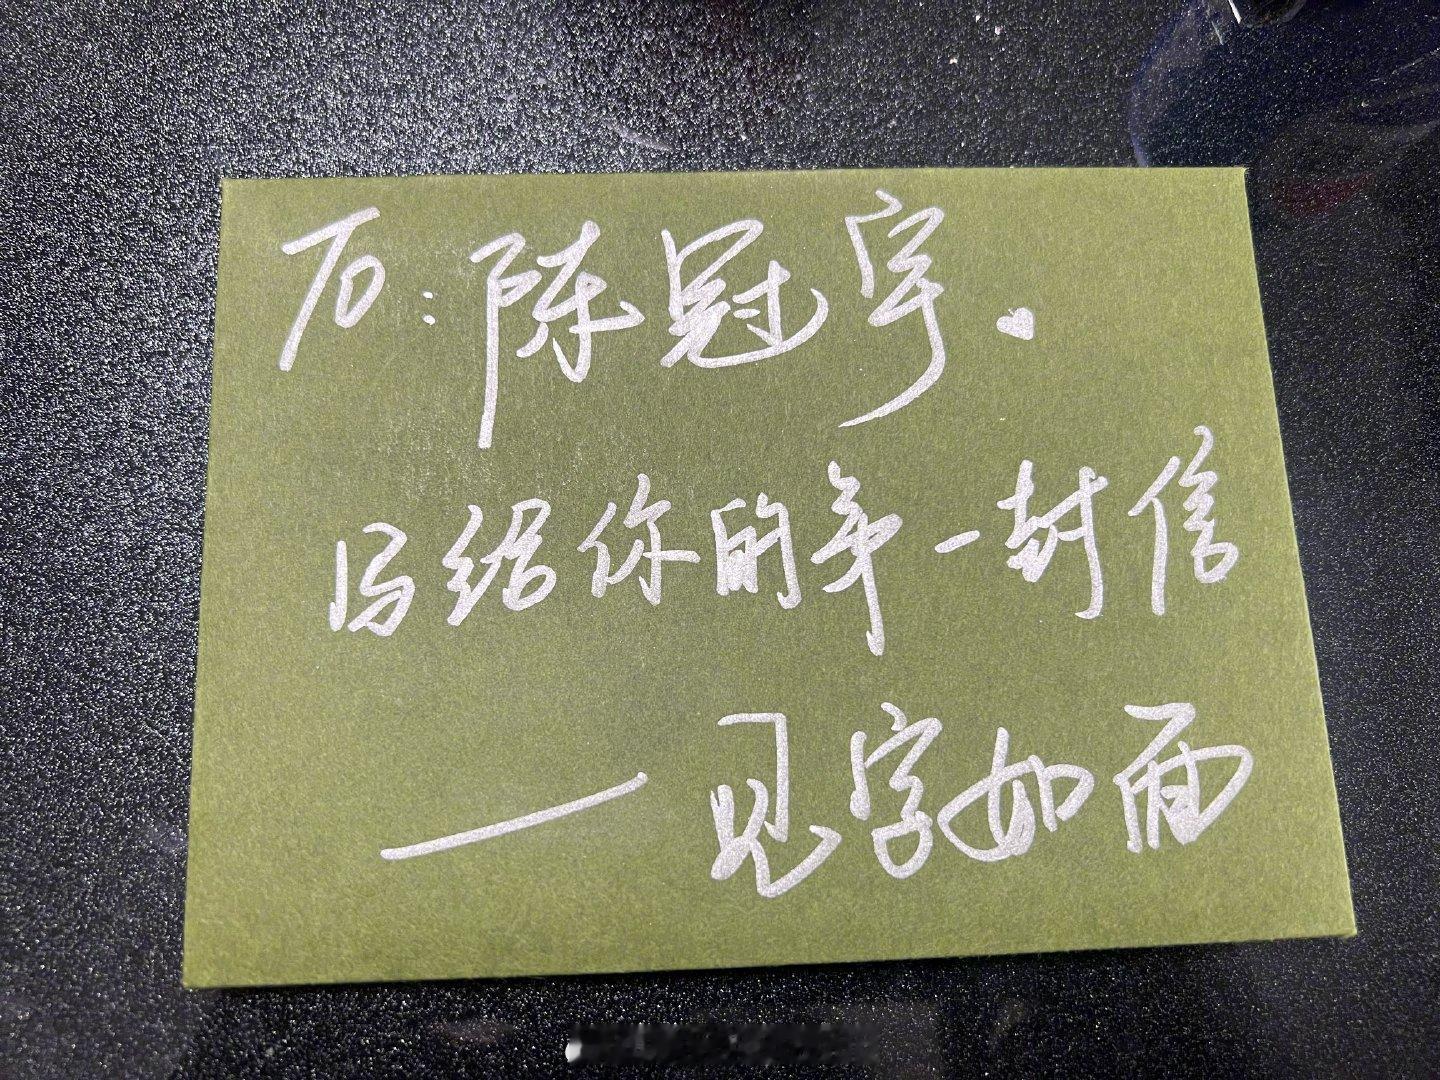 To:陈冠宇.
写给你的第一封信
——见字如面